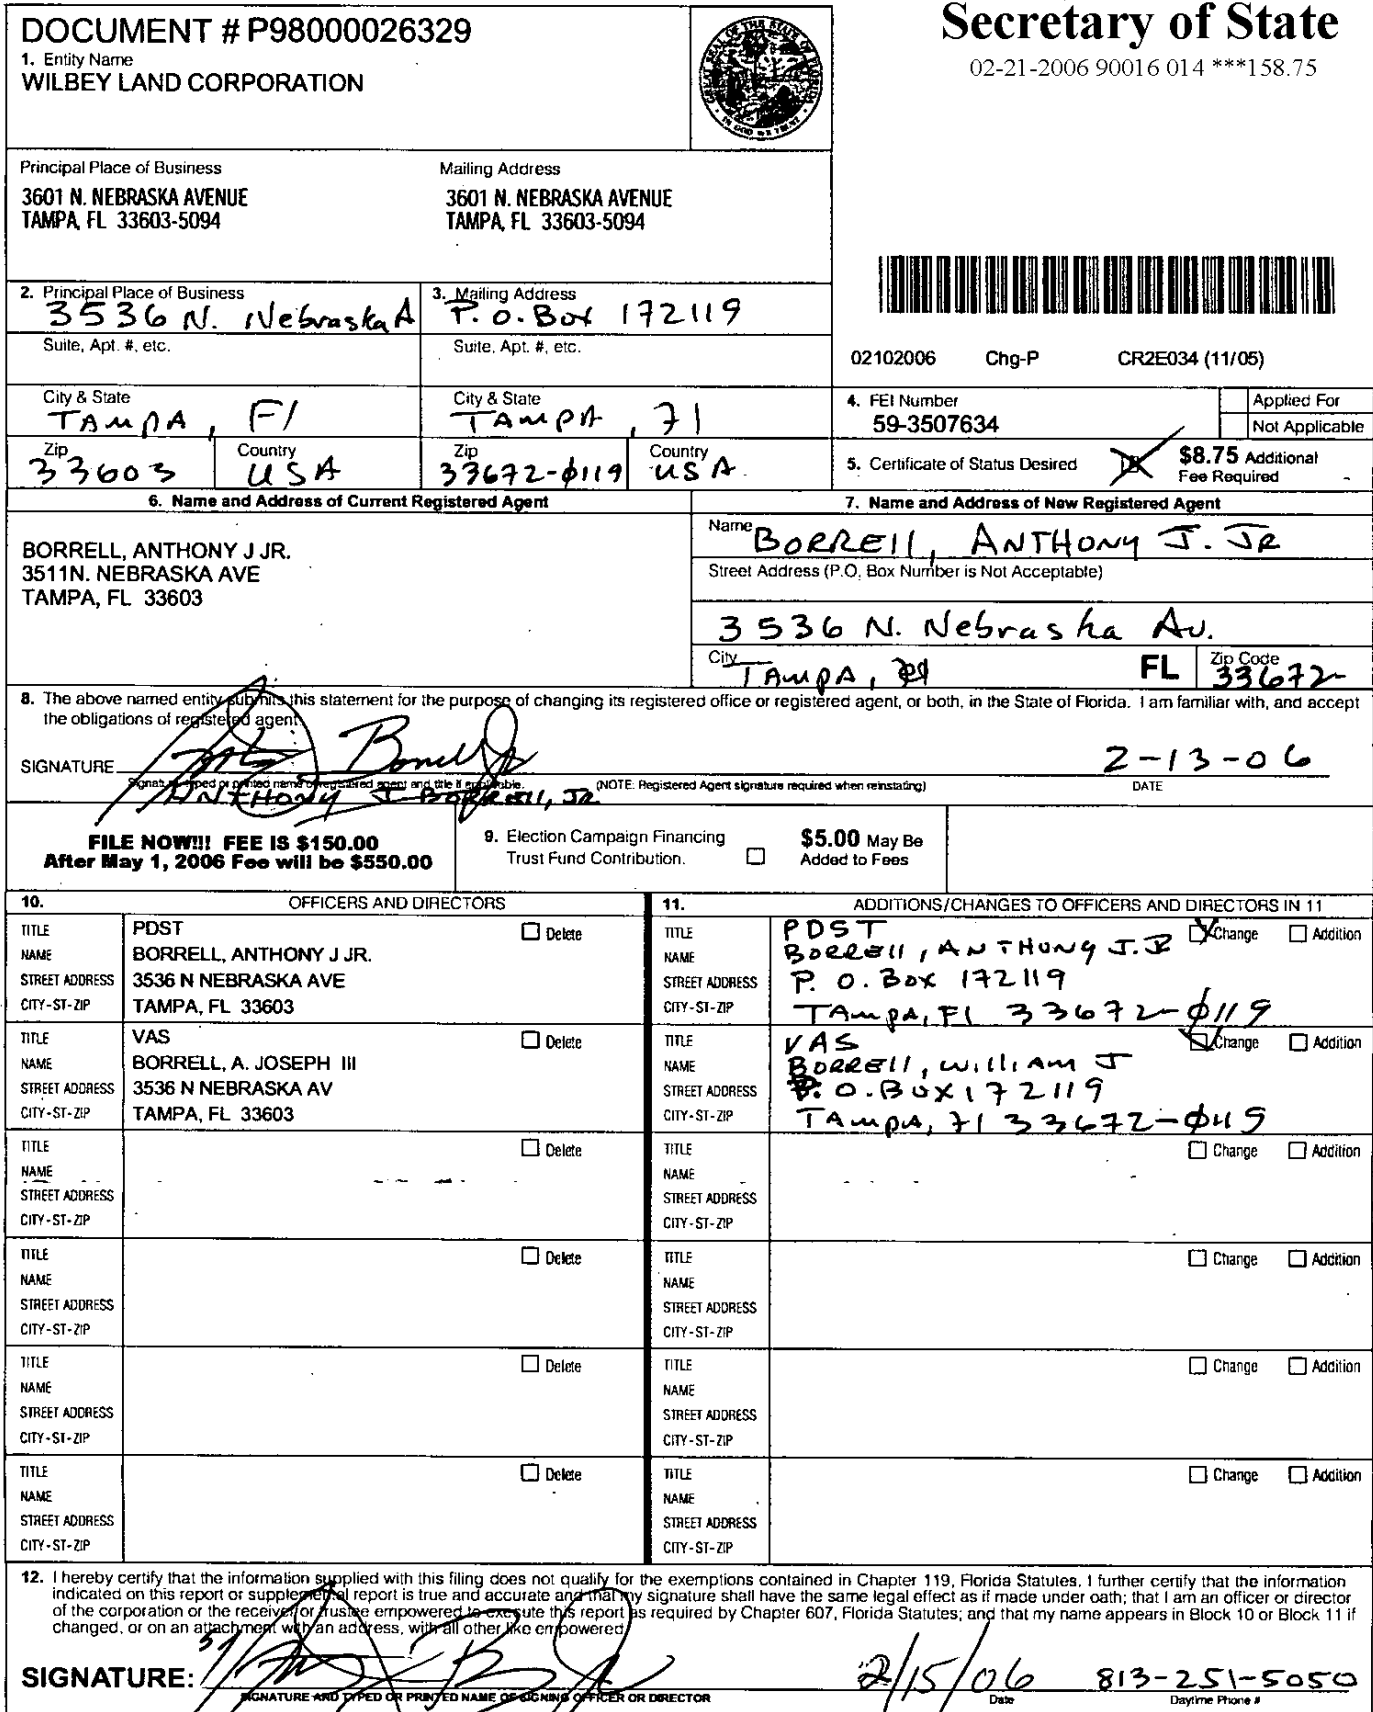 DOCUMENT # P98000026329
1. Entity Name
WILBEY LAND CORPORATION
GREAT SEAL OF THE STATE OF FLORIDA
IN GOD WE TRUST
Secretary of State
02-21-2006 90016 014 ***158.75
Principal Place of Business
3601 N. NEBRASKA AVENUE
TAMPA, FL 33603-5094
Mailing Address
3601 N. NEBRASKA AVENUE
TAMPA, FL 33603-5094
2. Principal Place of Business
3536 N. Nebraska A
3. Mailing Address
P. O. Box 172119
Suite, Apt. #, etc.
Suite, Apt. #, etc.
02102006 Chg-P CR2E034 (11/05)
City & State
TAMPA, Fl
City & State
TAMPA, Fl
Zip
33603
Country
USA
Zip
33672-0119
Country
USA
4. FEI Number
59-3507634
Applied For
Not Applicable
5. Certificate of Status Desired
$8.75 Additional
Fee Required
6. Name and Address of Current Registered Agent
BORRELL, ANTHONY J JR.
3511N. NEBRASKA AVE
TAMPA, FL 33603
7. Name and Address of New Registered Agent
Name BORRELL, ANTHONY J. JR
Street Address (P.O. Box Number is Not Acceptable)
3536 N. Nebraska Av.
City TAMPA, FL Zip Code 33672-
8. The above named entity submits this statement for the purpose of changing its registered office or registered agent, or both, in the State of Florida. I am familiar with, and accept
the obligations of registered agent.
SIGNATURE 2-13-06
Signature, typed or printed name of registered agent and title if applicable. (NOTE: Registered Agent signature required when reinstating) DATE
ANTHONY J BORRELL, JR.
FILE NOW!!! FEE IS $150.00
After May 1, 2006 Fee will be $550.00
9. Election Campaign Financing
Trust Fund Contribution.
$5.00 May Be
Added to Fees
10. OFFICERS AND DIRECTORS
TITLE PDST Delete
NAME BORRELL, ANTHONY J JR.
STREET ADDRESS 3536 N NEBRASKA AVE
CITY-ST-ZIP TAMPA, FL 33603
TITLE VAS Delete
NAME BORRELL, A. JOSEPH III
STREET ADDRESS 3536 N NEBRASKA AV
CITY-ST-ZIP TAMPA, FL 33603
TITLE Delete
NAME
STREET ADDRESS
CITY-ST-ZIP
TITLE Delete
NAME
STREET ADDRESS
CITY-ST-ZIP
TITLE Delete
NAME
STREET ADDRESS
CITY-ST-ZIP
TITLE Delete
NAME
STREET ADDRESS
CITY-ST-ZIP
11. ADDITIONS/CHANGES TO OFFICERS AND DIRECTORS IN 11
TITLE PDST Change Addition
NAME BORRELL, ANTHONY J. JR
STREET ADDRESS P. O. Box 172119
CITY-ST-ZIP TAMPA, Fl 33672-0119
TITLE VAS Change Addition
NAME BORRELL, WILLIAM J
STREET ADDRESS P. O. BOX 172119
CITY-ST-ZIP TAMPA, Fl 33672-0119
TITLE Change Addition
NAME
STREET ADDRESS
CITY-ST-ZIP
TITLE Change Addition
NAME
STREET ADDRESS
CITY-ST-ZIP
TITLE Change Addition
NAME
STREET ADDRESS
CITY-ST-ZIP
TITLE Change Addition
NAME
STREET ADDRESS
CITY-ST-ZIP
12. I hereby certify that the information supplied with this filing does not qualify for the exemptions contained in Chapter 119, Florida Statutes. I further certify that the information
indicated on this report or supplemental report is true and accurate and that my signature shall have the same legal effect as if made under oath; that I am an officer or director
of the corporation or the receiver or trustee empowered to execute this report as required by Chapter 607, Florida Statutes; and that my name appears in Block 10 or Block 11 if
changed, or on an attachment with an address, with all other like empowered.
SIGNATURE: 2/15/06 813-251-5050
SIGNATURE AND TYPED OR PRINTED NAME OF SIGNING OFFICER OR DIRECTOR Date Daytime Phone #